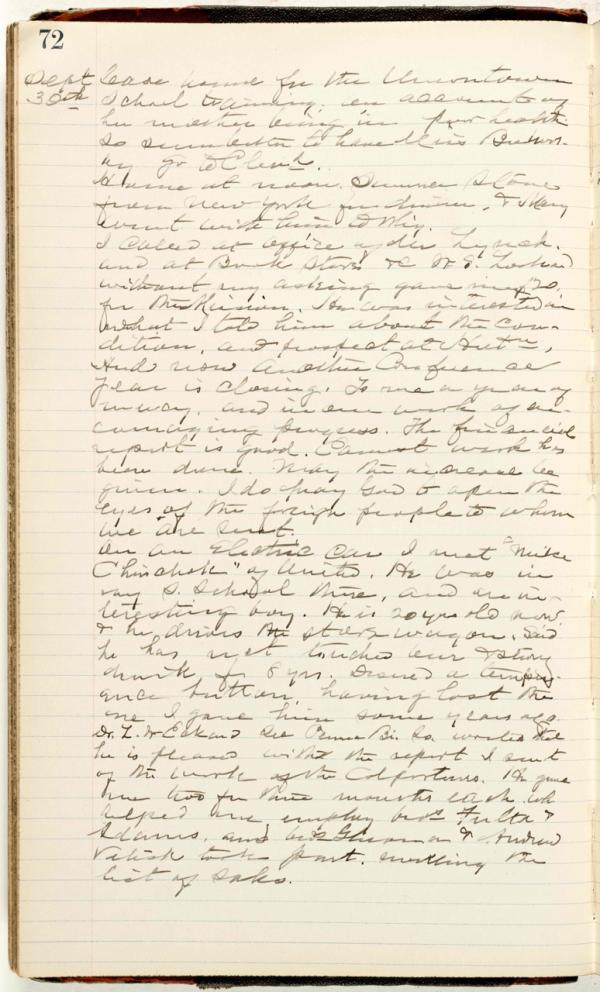 72
Sept leave home for the Uniontown
30th School training, on account of
her mother being in poor health.
So
to have Miss
go to Cleveld.
Home at noon. Sumner Stone
from New York for dinner, & Mary
went with him to
I called at office of Mr Lynch.
and at Book Store &c
without my asking gave me $20.
for the Mission. He was interested in
what I told him about the con-
dition, and prospect at
And now another Conference
Year is closing. To me a year of
mercy, and in our work of en-
couraging progress. The financial
report is good. Earnest work has
been done. May the increase be
given. I do pray God to open the
eyes of the foreign people to whom
we are sent.
On an Electric Car I met "Mike
" of United. He was in
my S. School there, and an in-
teresting boy. He is 20 yrs old now,
& he drives the store wagon, said
he has not touched beer & strong
drink for 8 yrs. Desired a temper-
ance button, having lost the
one I gave him some years ago.
Dr. Sec wrote that
he is pleased with the report I sent
of the work of the Colporteurs. He gave
me two for three months each, wh
helped me employ bros Fulta &
Adams, and bro & Andrew
took part, swelling the
list of sales.